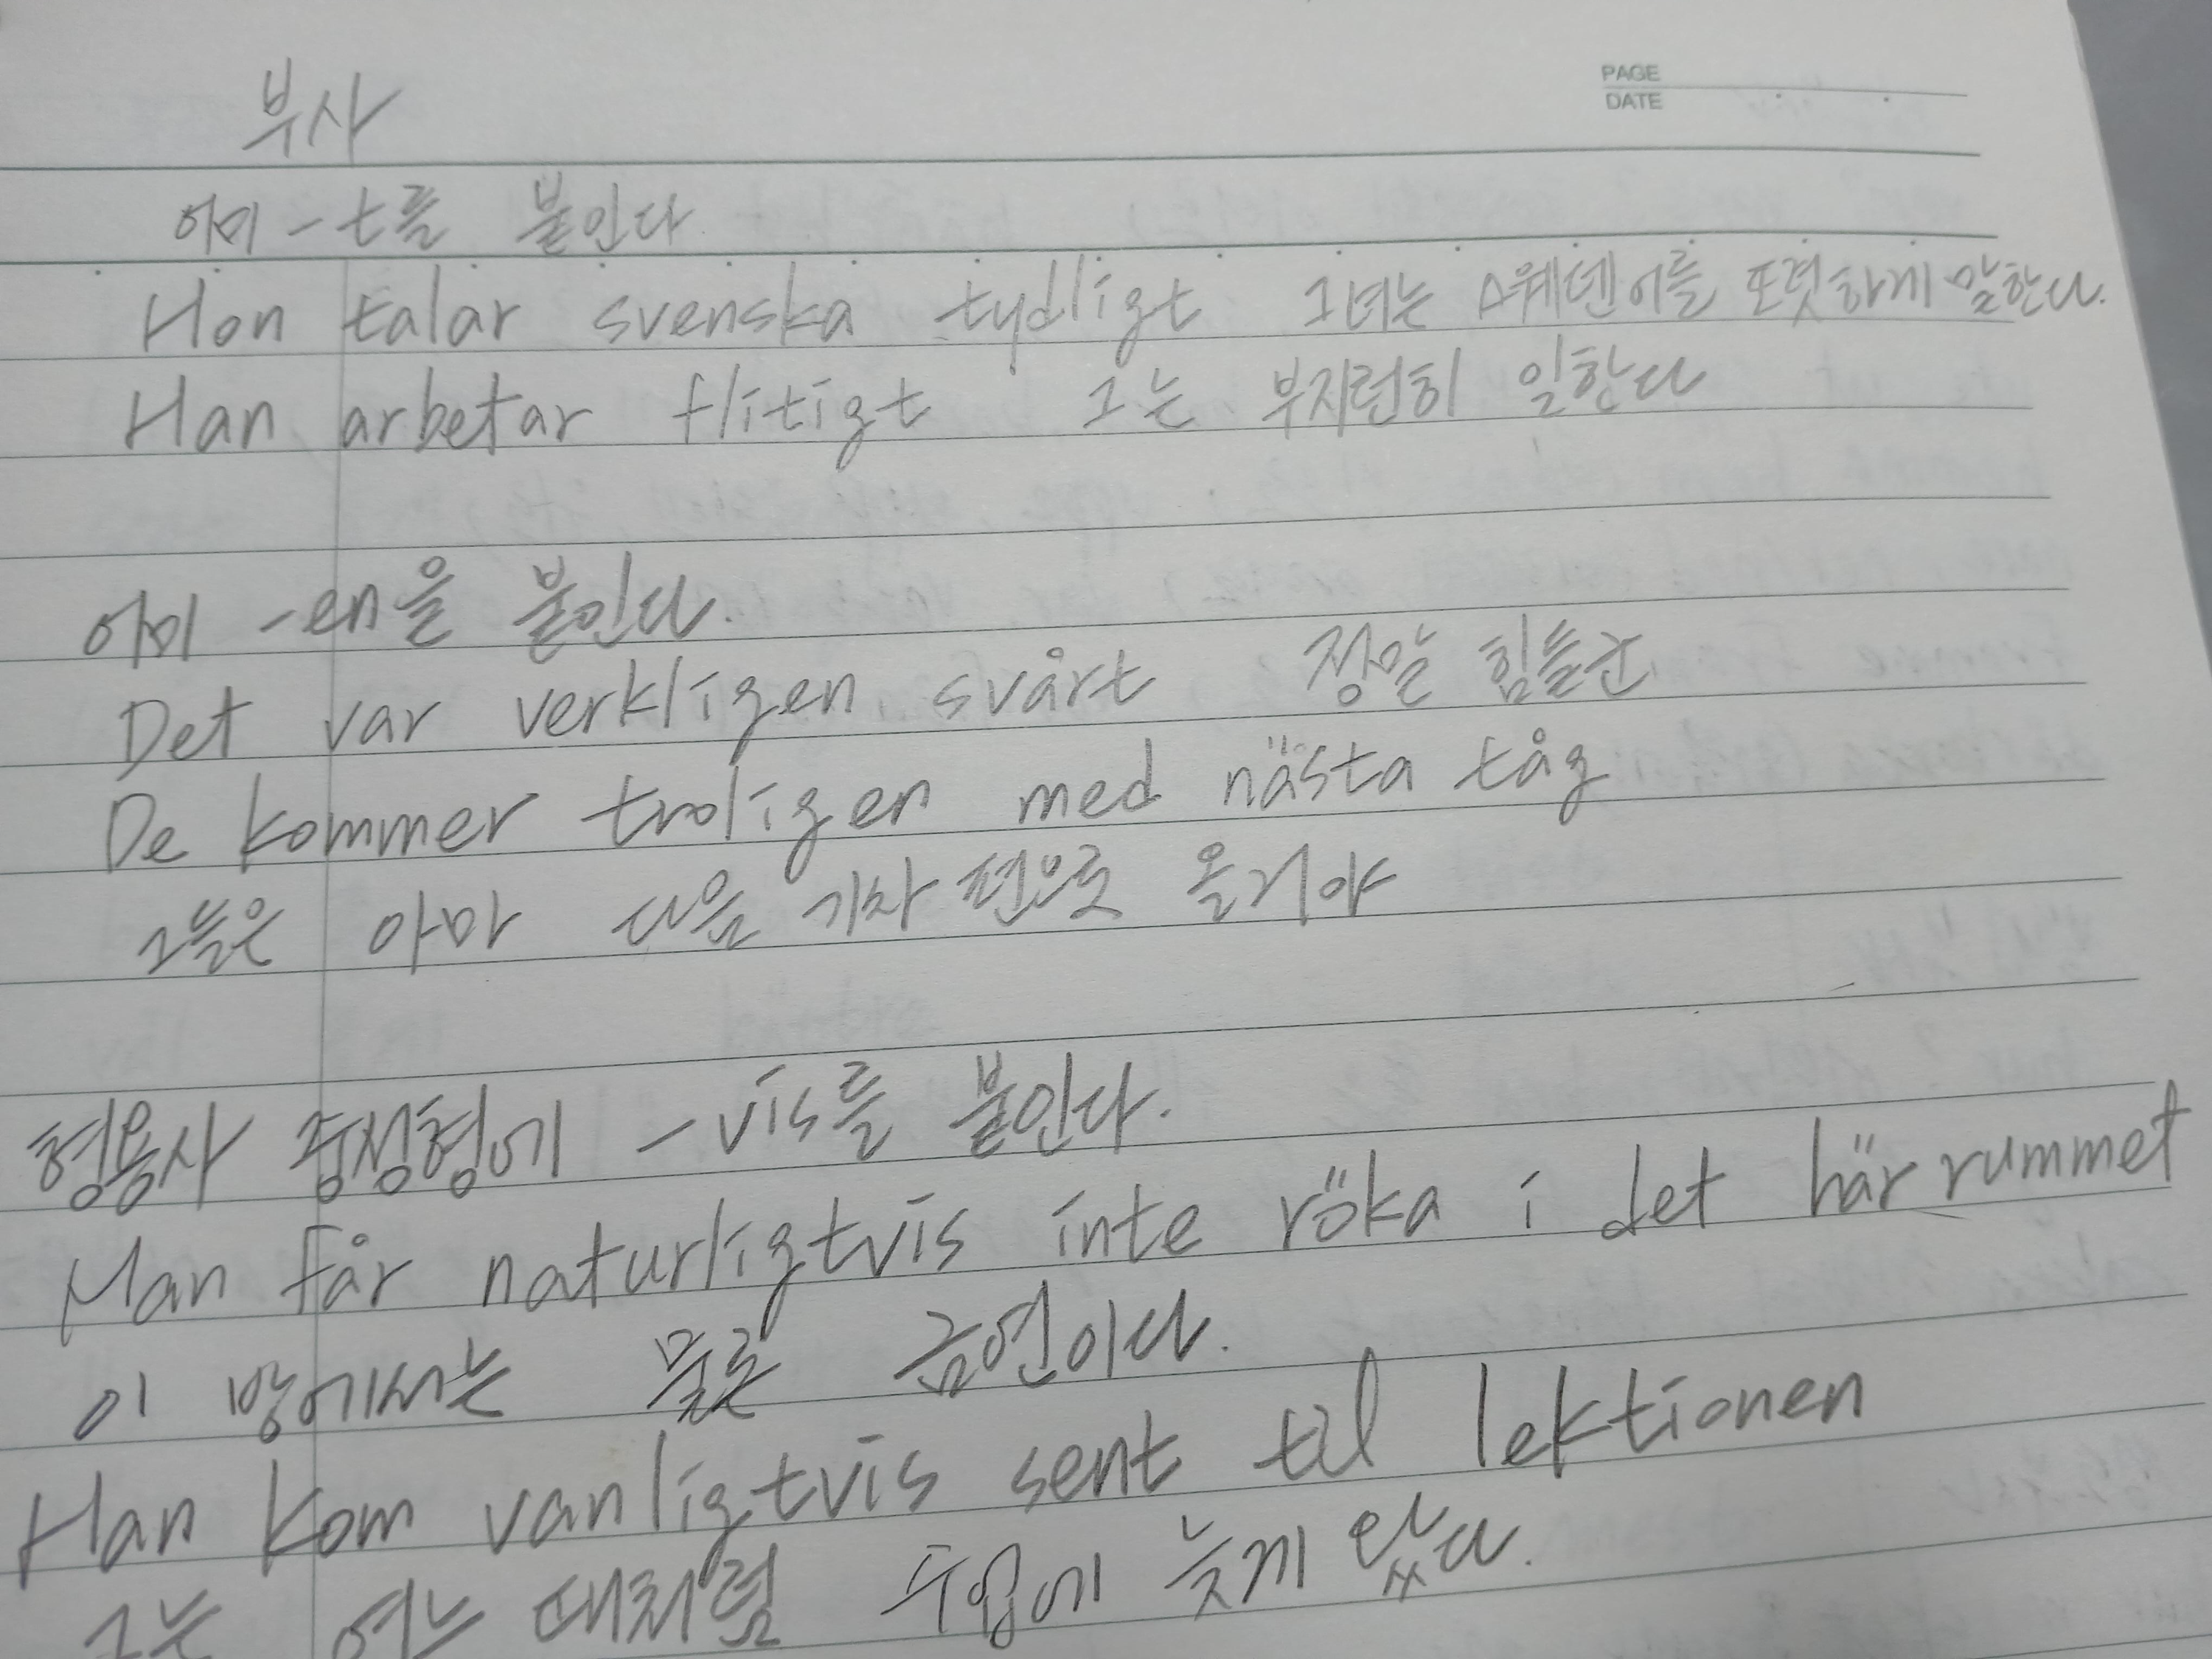 PAGE
DATE
부사
어미 -t를 붙인다
Hon talar svenska tydligt 그녀는 스웨덴어를 또렷하게 말한다.
Han arbetar flitigt 그는 부지런히 일한다
어미 -en을 붙인다.
Det var verkligen svårt 정말 힘들군
De kommer troligen med nästa tåg
그들은 아마 다음 기차 편으로 올거야
형용사 중성형에 -vis를 붙인다.
Man får naturligtvis inte röka i det här rummet
이 방에서는 물론 금연이다.
Han kom vanligtvis sent til lektionen
그는 여느 때처럼 수업에 늦게 왔다.